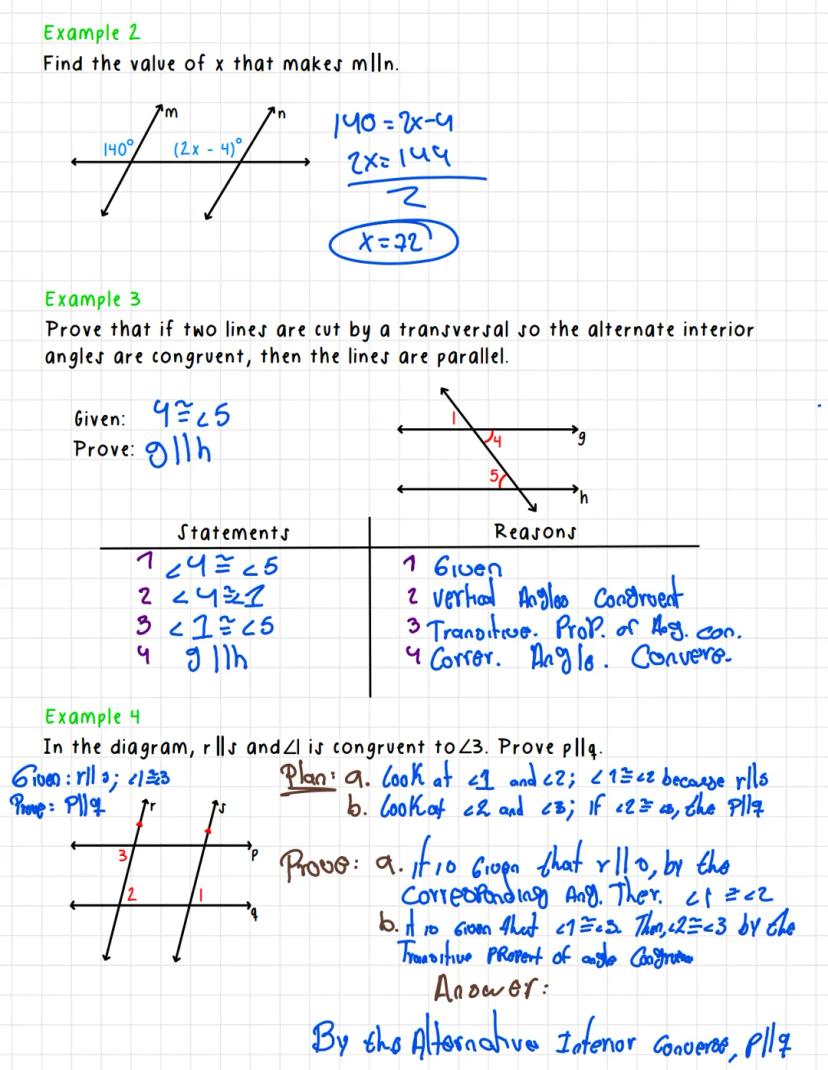 Example 2
Find the value of x that makes m||n.
m
n
140°
(2x - 4)°
140 = 2x-4
2x = 144
2
x = 72
Example 3
Prove that if two lines are cut by a transversal so the alternate interior
angles are congruent, then the lines are parallel.
Given: 4≅∠5
Prove: g||h
1
g
4
5
h
Statements
Reasons
1 ∠4 ≅ ∠5
1 Given
2 ∠4≅1
2 Vertical Angles Congruent
3 ∠1 ≅ ∠5
3 Transitive. Prop. of Ang. con.
4 g ||h
4 Correr. Angle. Convere.
Example 4
In the diagram, r||s and∠1 is congruent to∠3. Prove p||q.
Given: r|| s; ∠1≅3
Prove: P||q
Plan: a. Look at ∠1 and ∠2; ∠1≅∠2 because r||s
b. Look at ∠2 and ∠3; if ∠2≅ ∠3, the P||q
r
s
3
p
2
1
q
Prove: a. it is Given that r||s, by the
Corresponding Ang. Ther. ∠1 ≅ ∠2
b. it is Given that ∠1≅∠3. Then, ∠2≅∠3 by the
Transitive Propert of angle
Answer:
By the Alternative Interior Converse, P||q